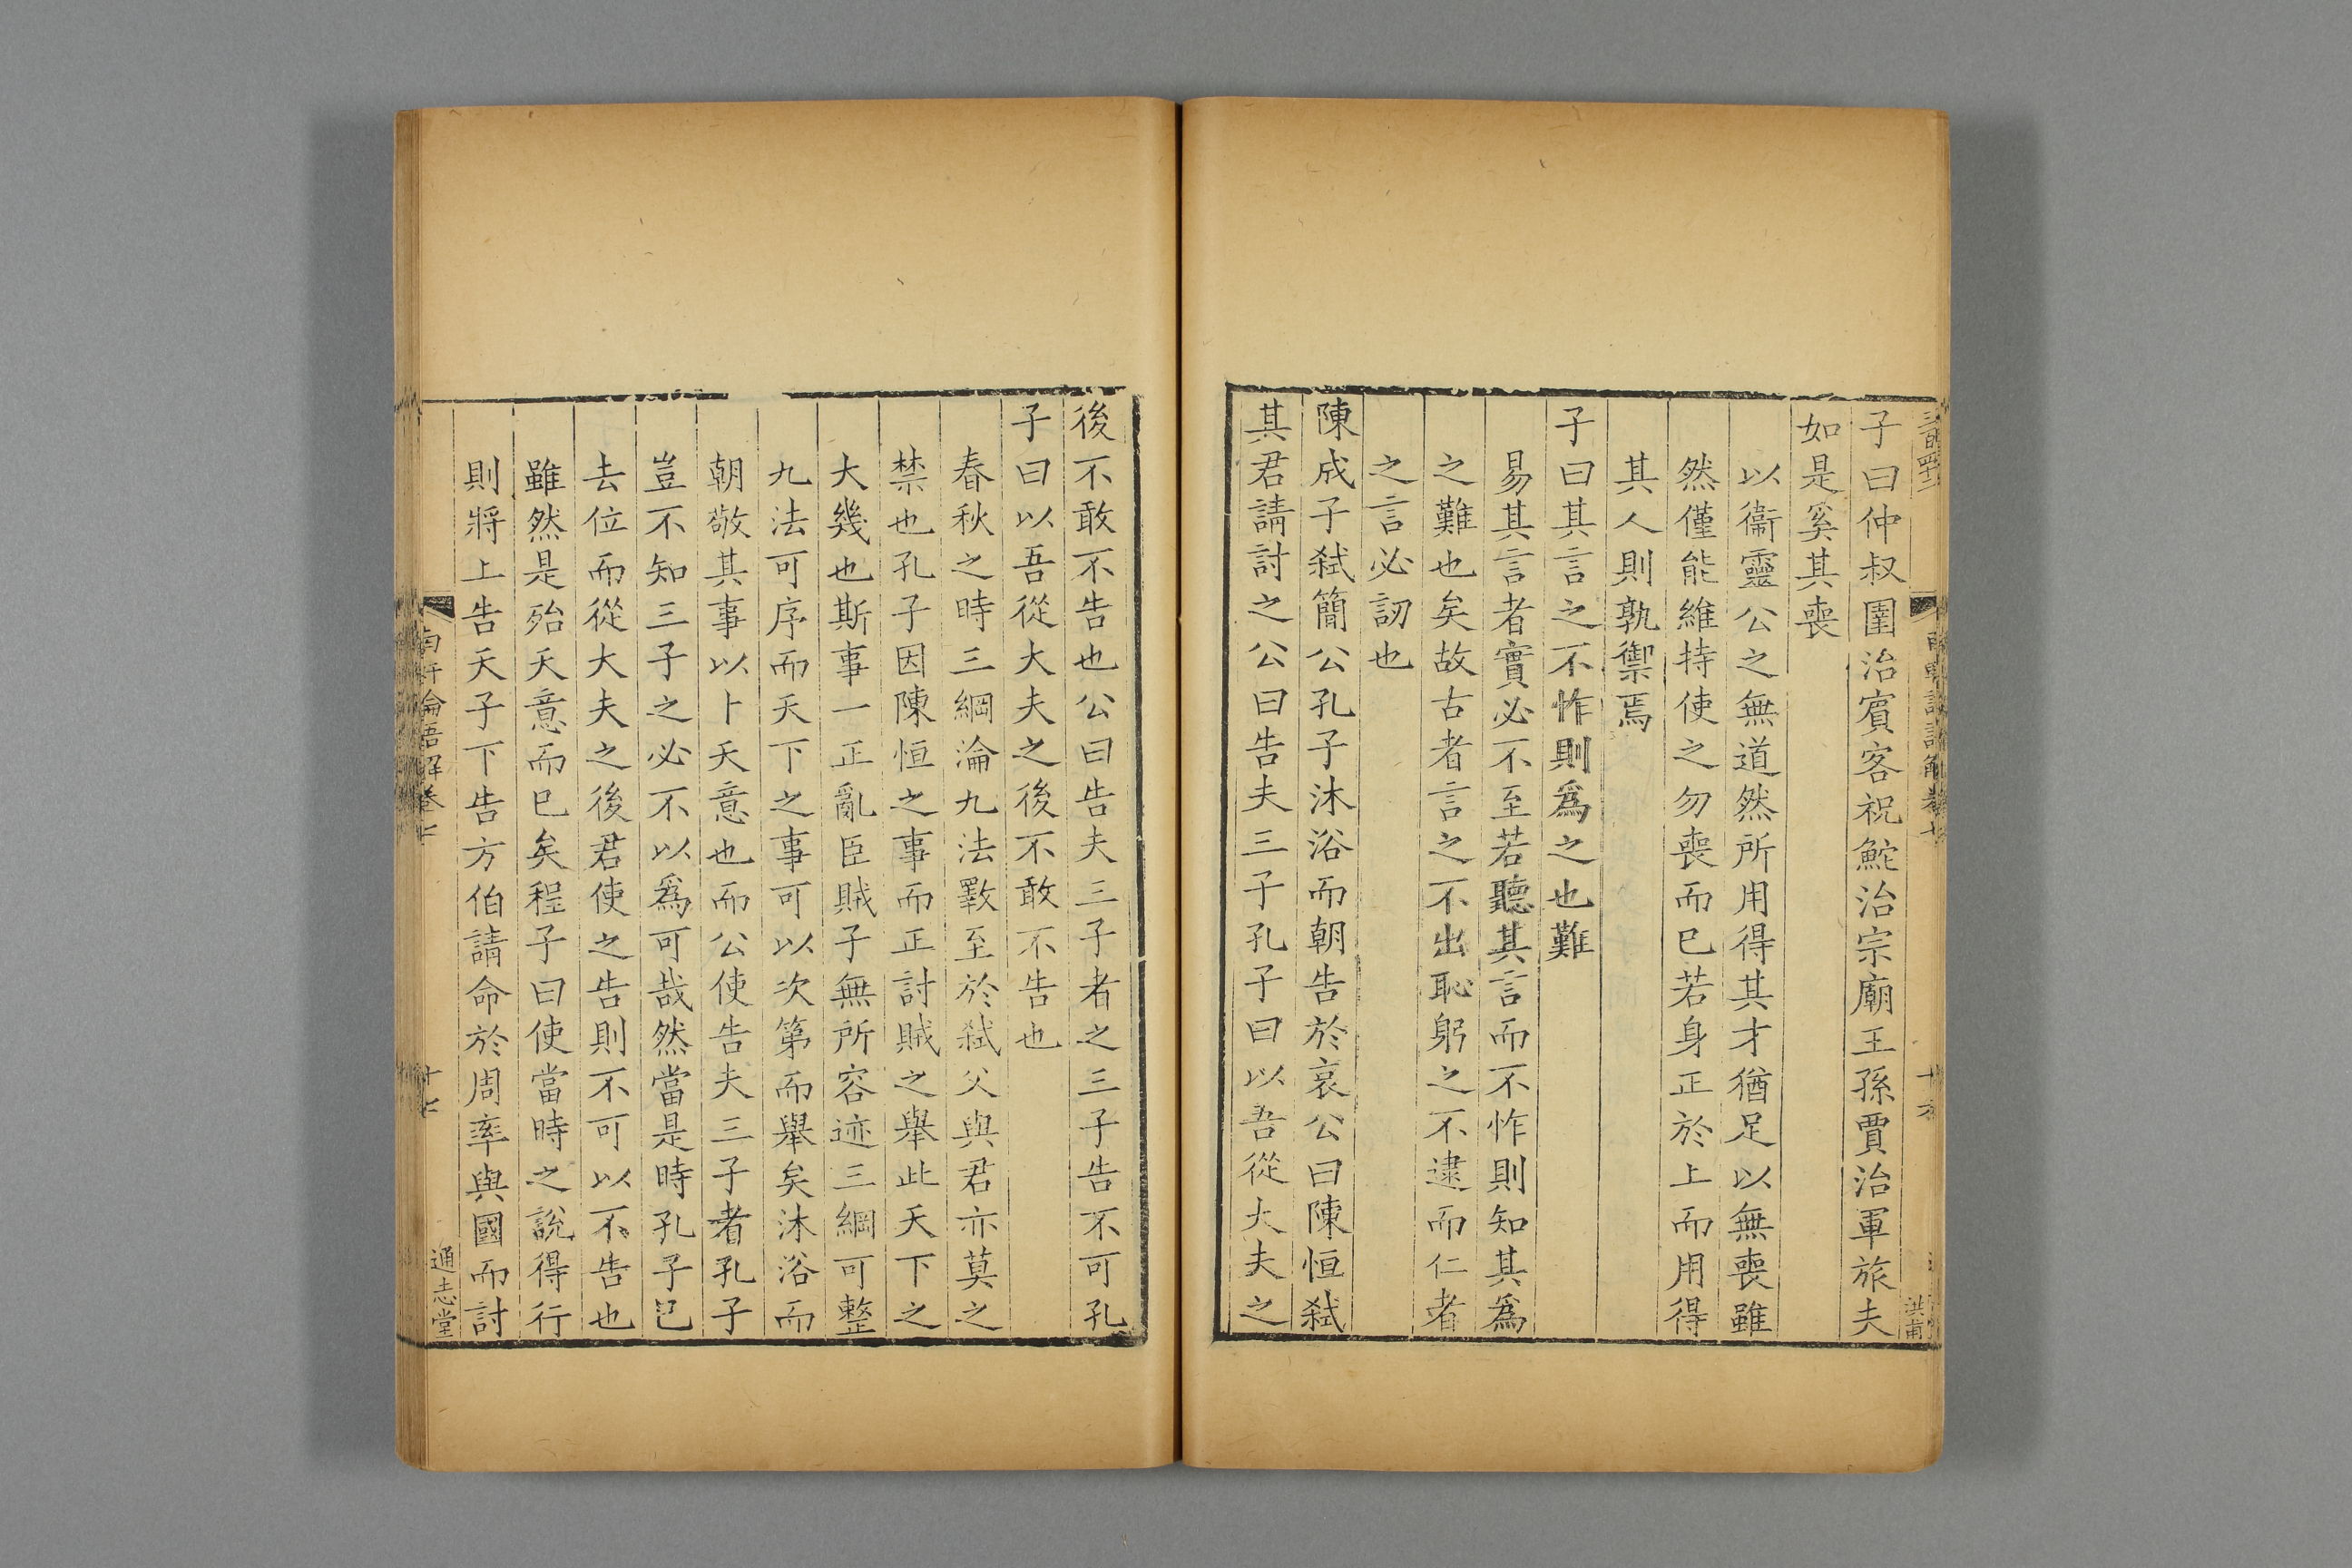 子曰仲叔圉治賓客祝鮀治宗廟王孫賈治軍旅夫
如是奚其喪
以衞靈公之無道然所用得其才猶足以無喪雖
然僅能維持使之勿喪而已若身正於上而用得
其人則孰禦焉
子曰其言之不怍則爲之也難
易其言者實必不至若聽其言而不怍則知其爲
之難也矣故古者言之不出恥躬之不逮而仁者
之言必訒也
陳成子弑簡公孔子沐浴而朝告於哀公曰陳恒弑
其君請討之公曰告夫三子孔子曰以吾從大夫之
後不敢不告也公曰告夫三子者之三子告不可孔
子曰以吾從大夫之後不敢不告也
春秋之時三綱淪九法斁至於弑父與君亦莫之
禁也孔子因陳恒之事而正討賊之舉此天下之
大幾也斯事一正亂臣賊子無所容迹三綱可整
九法可序而天下之事可以次第而舉矣沐浴而
朝敬其事以卜天意也而公使告夫三子者孔子
豈不知三子之必不以爲可哉然當是時孔子已
去位而從大夫之後君使之告則不可以不告也
雖然是殆天意而已矣程子曰使當時之說得行
則將上告天子下告方伯請命於周率與國而討
南軒論語解卷七
十七
通志堂